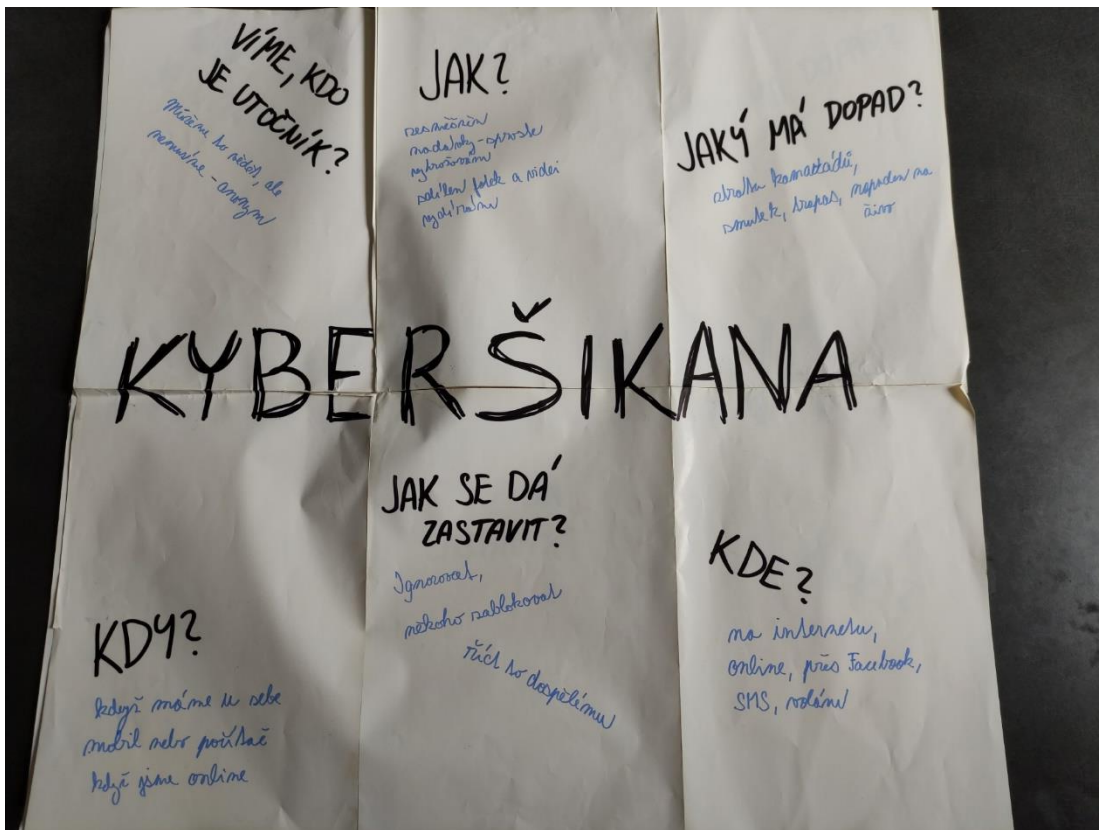 VÍME, KDO
JE UTOČNÍK?
Můžeme ho vědět, ale
nemusíme - anonym
JAK?
zesměšněn
nadávky - sprosté
vyhrožování
sdílen fotek a videí
vydírání
JAKÝ MÁ DOPAD?
ztratka kamarádů,
smutek, trapas, napaden na
živo
KYBERŠIKANA
JAK SE DÁ
ZASTAVIT?
Ignorovat,
někoho zablokovat
říct to dospělému
KDE?
na internetu,
online, přes Facebook,
SMS, volání
KDY?
když máme u sebe
mobil nebo počítač
když jsme online